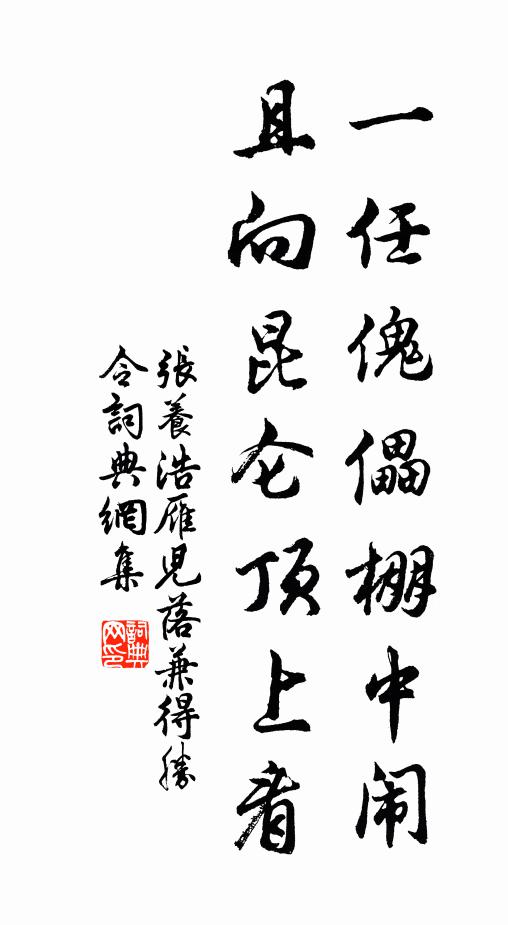 一任傀儡棚中闹
且向昆仑顶上看
張養浩雁兒落兼得勝
令詞典網集
詞典
网印